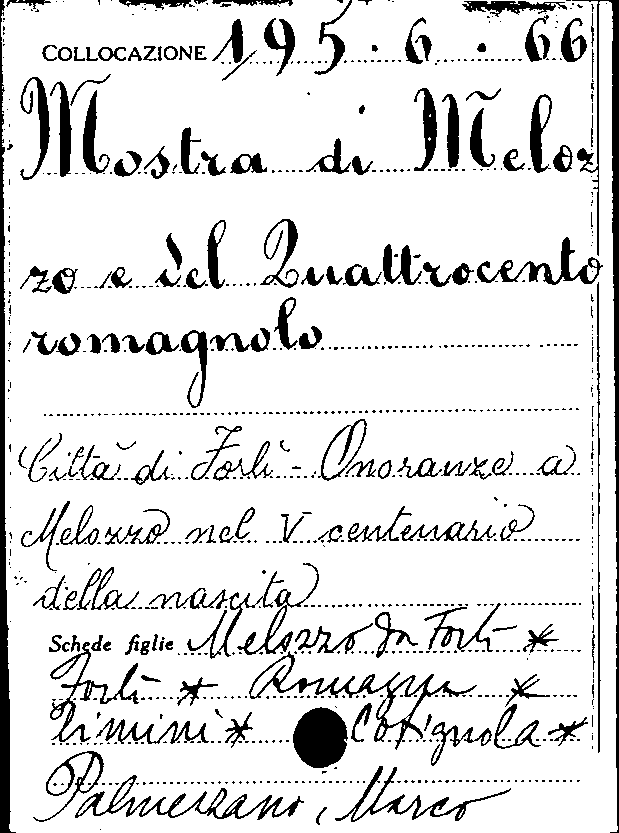 COLLOCAZIONE 195.6.66
Mostra di Meloz
zo e del Quattrocento
romagnolo
Città di Forlì - Onoranze a
Melozzo nel V centenario
della nascita
Schede figlie Melozzo da Forlì *
Forlì * Romagna *
Rimini * Cotignola *
Palmezzano, Marco